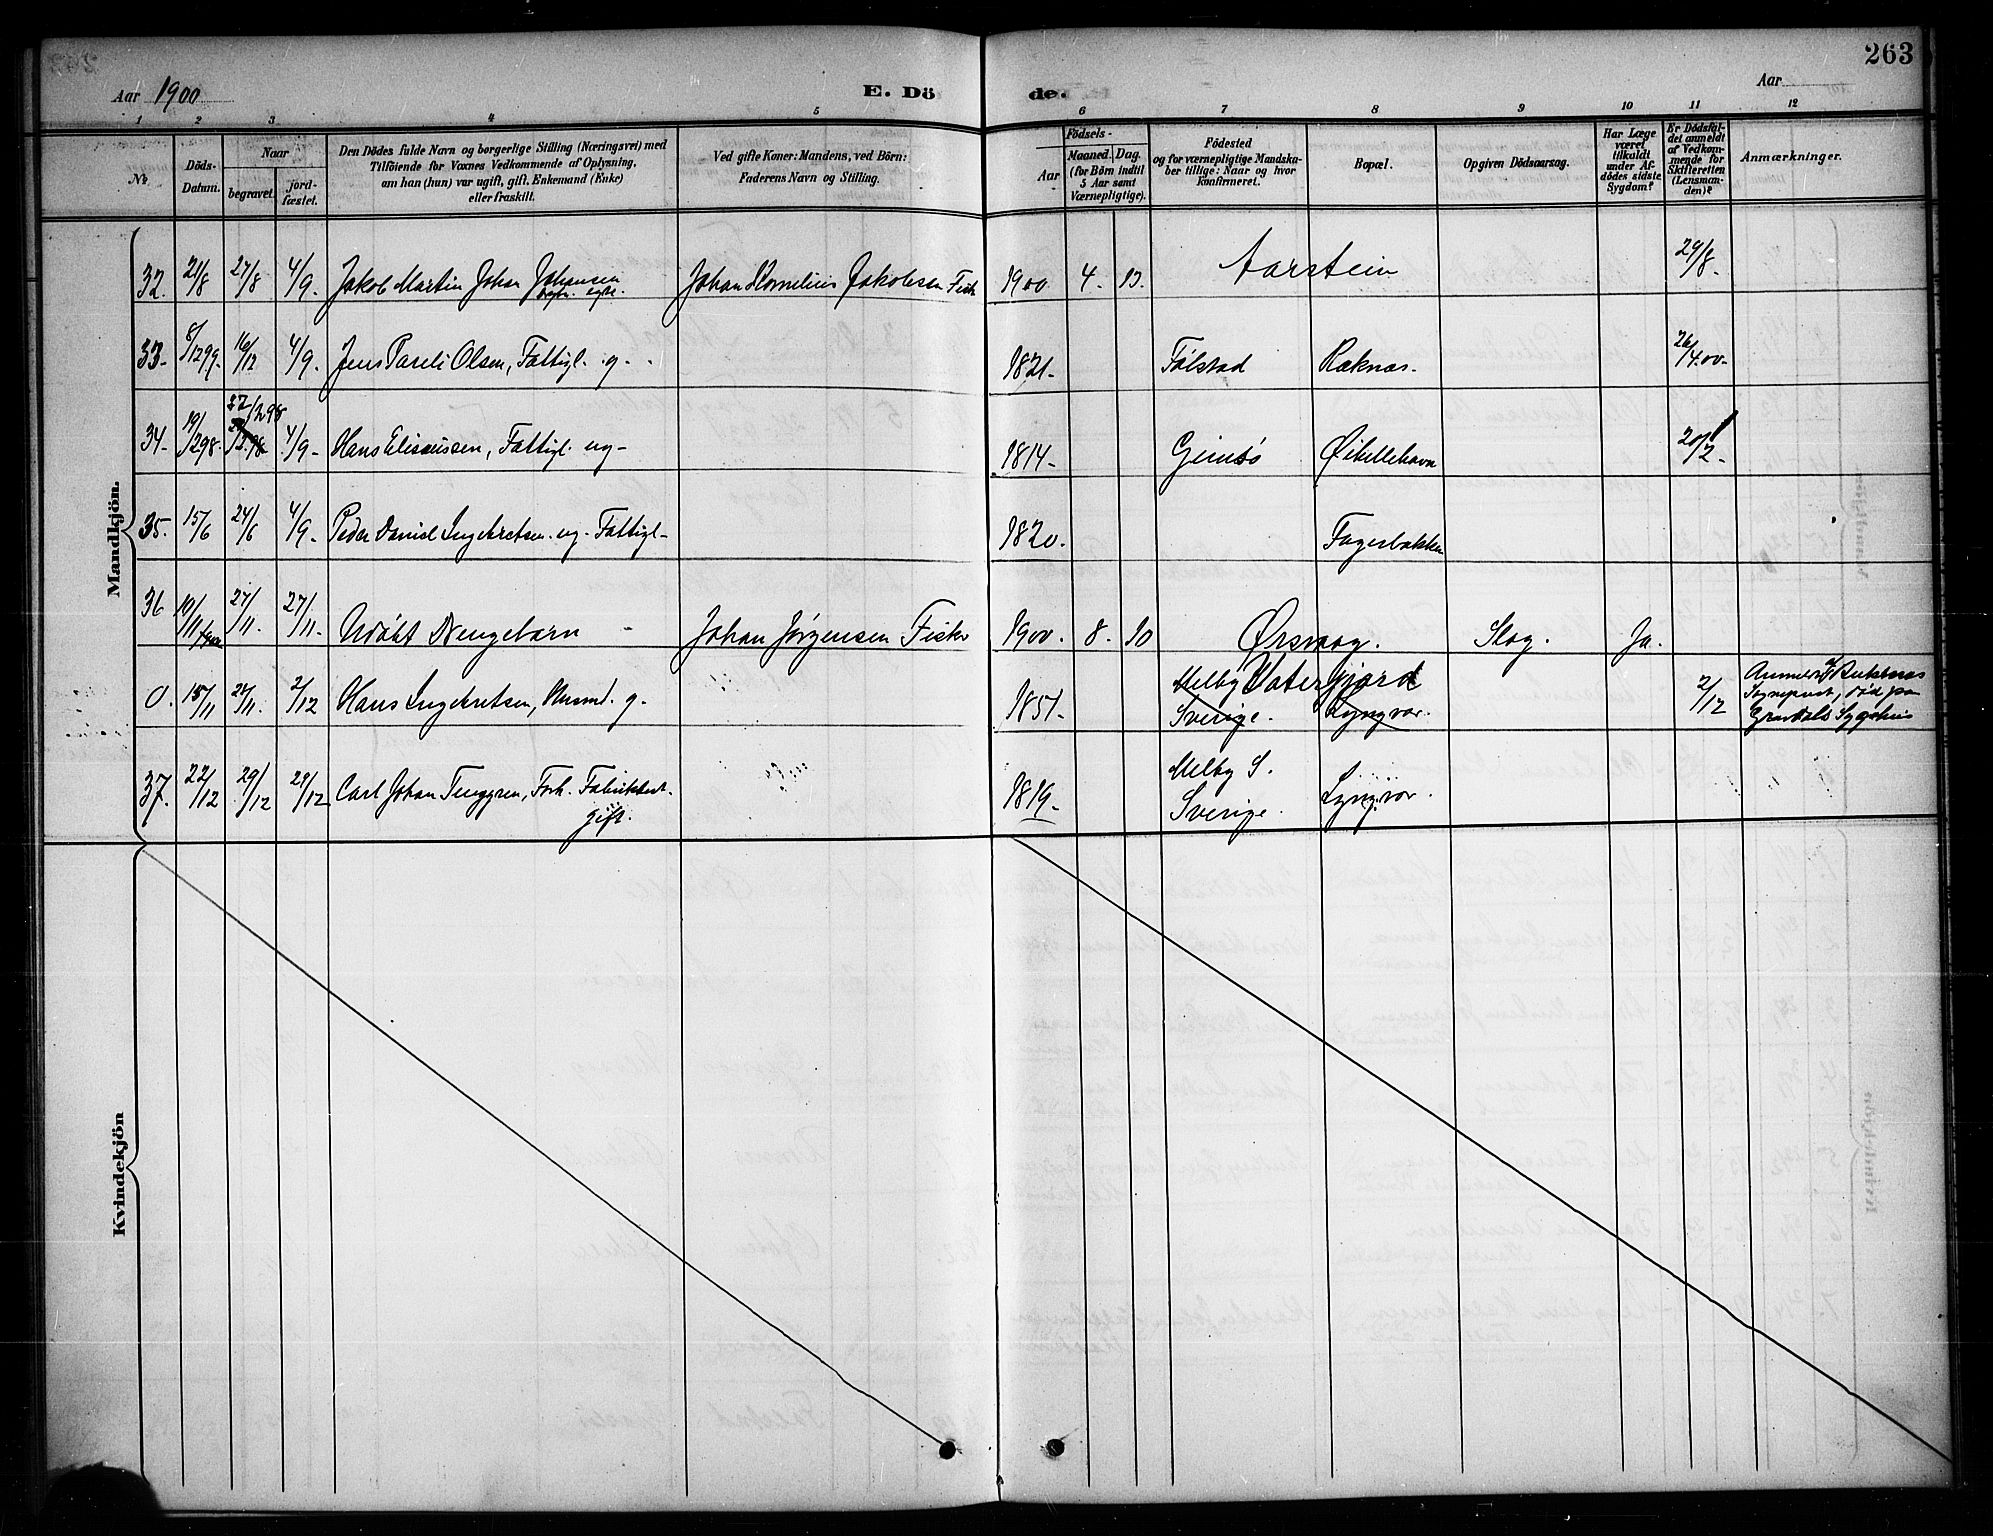 263
Aar 1900
E. Dö
de.
Aar
1 2 3 4 5 6 7 8 9 10 11 12
№
Döds-
Datum.
Naar
begravet.
jord-
fæstet.
Den Dödes fulde Navn og borgerlige Stilling (Næringsvei) med
Tilföiende for Voxnes Vedkommende af Oplysning,
om han (hun) var ugift, gift, Enkemand (Enke)
eller fraskilt.
Ved gifte Koner: Mandens, ved Börn:
Faderens Navn og Stilling.
Födsels-
Aar
Maaned.
Dag.
(for Börn indtil
5 Aar samt
Værnepligtige).
Födested
og for værnepligtige Mandska-
ber tillige: Naar og hvor
Konfirmeret.
Bopæl.
Opgiven Dödsaarsag.
Har Læge
været
tilkaldt
under Af-
dödes sidste
Sygdom?
Er Dödsfal-
det anmeldt
af Vedkom-
mende for
Skifteretten
(Lensman-
den)?
Anmærkninger.
Mandkjön.
32. 21/8 27/8 4/9. Jakob Martin Johan Johansen Johan Kornelius Jakobsen Fisk 1900 4. 13. Aarstein 29/8.
33. 8/12 99. 16/12 4/9. Jens Pareli Olsen, Fattigl. g. 1821. Fölstad Ræknæs. 26/4.00.
34. 19/2 98. 27/2 98 4/9. Hans Elisæussen, Fattigl. ug. 1814. Gimsö 20/2.
35. 15/6 24/6 4/9. Peder Daniel Ingebretsen. ug. Fattigl. 1820. Fagerbakken
36 19/11 27/11. 27/11. Udöbt Drengebarn Johan Jörgensen Fisker 1900. 8. 10 Örsvaag. Slag. Ja.
0. 15/11 27/11. 2/12 Hans Ingebretsen, Husmd. g. 1851. Melby Sverige. Vaterfjord Lyngvær. 2/12
Sygehus
37. 22/12 29/12 29/12 Carl Johan Tenggren, Forh. Fabrikbest. gift. 1819. Melby S. Sverige. Lyngvær.
Kvindekjön